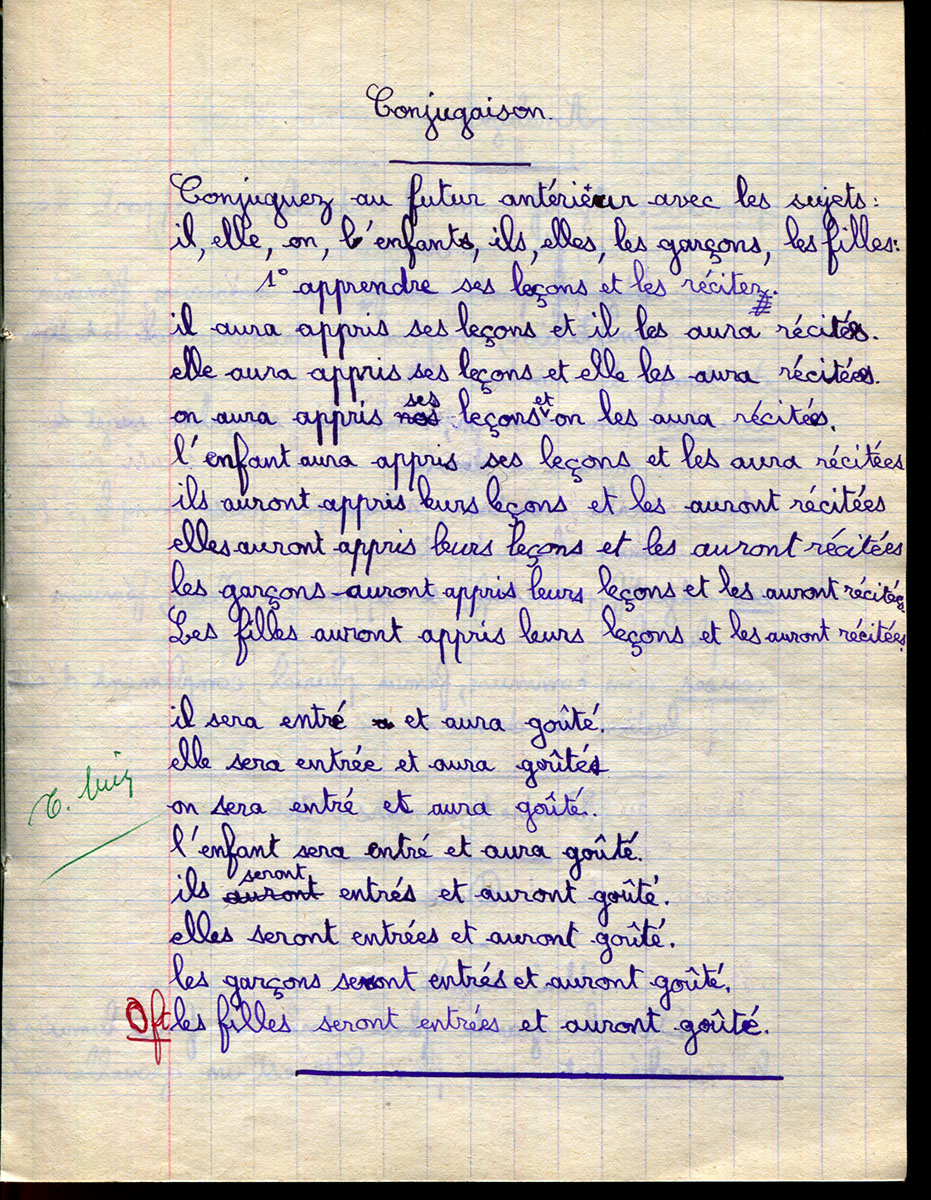 Conjugaison.
Conjuguez au futur antérieur avec les sujets :
il, elle, on, l'enfant, ils, elles, les garçons, les filles :
1° apprendre ses leçons et les réciter.
il aura appris ses leçons et il les aura récitées.
elle aura appris ses leçons et elle les aura récitées.
on aura appris nos ses leçons et on les aura récitées.
l'enfant aura appris ses leçons et les aura récitées
ils auront appris leurs leçons et les auront récitées
elles auront appris leurs leçons et les auront récitées
les garçons auront appris leurs leçons et les auront récitées.
Les filles auront appris leurs leçons et les auront récitées.
il sera entré et aura goûté.
elle sera entrée et aura goûté
on sera entré et aura goûté.
l'enfant sera entré et aura goûté.
ils auront seront entrés et auront goûté.
elles seront entrées et auront goûté.
les garçons seront entrés et auront goûté.
les filles seront entrées et auront goûté.
T. bien
0 ft